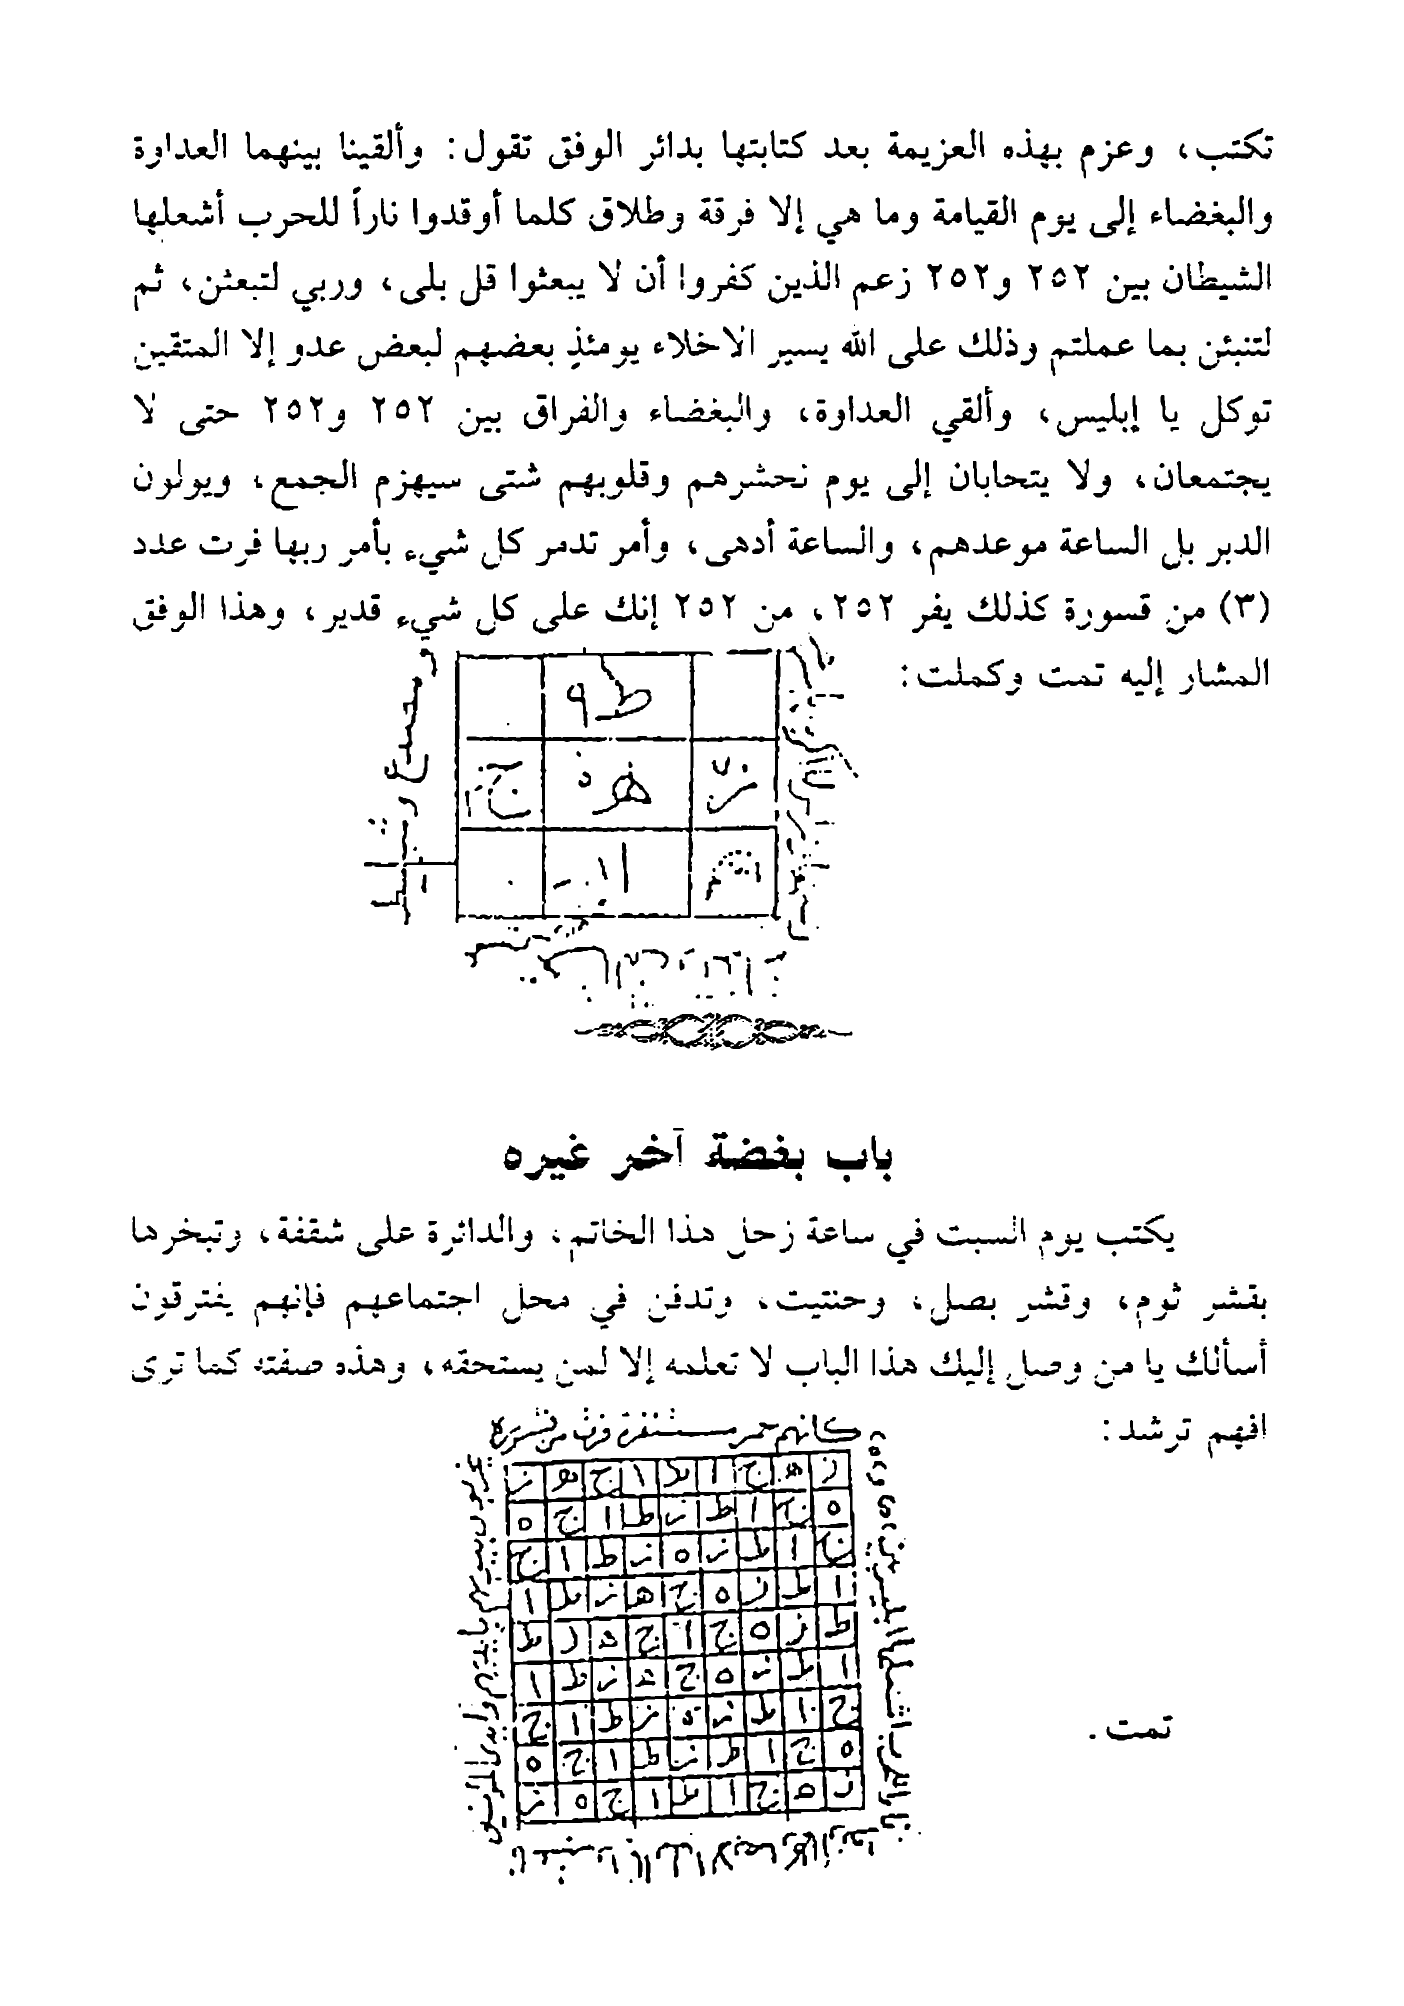 تكتب، وعزم بهذه العزيمة بعد كتابتها بدائر الوفق تقول: وألقينا بينهما العداوة
والبغضاء إلى يوم القيامة وما هي إلا فرقة وطلاق كلما أوقدوا ناراً للحرب أشعلها
الشيطان بين ٢٥٢ و٢٥٢ زعم الذين كفروا أن لا يبعثوا قل بلى، وربي لتبعثن، ثم
لتنبئن بما عملتم وذلك على الله يسير الاخلاء يومئذٍ بعضهم لبعض عدو إلا المتقين
توكل يا إبليس، وألقي العداوة، والبغضاء والفراق بين ٢٥٢ و٢٥٢ حتى لا
يجتمعان، ولا يتحابان إلى يوم نحشرهم وقلوبهم شتى سيهزم الجمع، ويولون
الدبر بل الساعة موعدهم، والساعة أدهى، وأمر تدمر كل شيء بأمر ربها فرت عدد
(٣) من قسورة كذلك يفر ٢٥٢، من ٢٥٢ إنك على كل شيء قدير، وهذا الوفق
المشار إليه تمت وكملت:
باب بغضة آخر غيره
يكتب يوم السبت في ساعة زحل هذا الخاتم، والدائرة على شقفة، وتبخرها
بقشر ثوم، وقشر بصل، وحنتيت، وتدفن في محل اجتماعهم فإنهم يفترقون
أسألك يا من وصل إليك هذا الباب لا تعلمه إلا لمن يستحقه، وهذه صفته كما ترى
افهم ترشد:
كانهم حمر مستنفرة فرت من قسورة
ز ه ج ا ط ا ج ه ز
ه ج ا ط ز ط ا ج ه
ج ا ط ز ه ز ط ا ج
ا ط ز ه ج ه ز ط ا
ط ز ه ج ا ج ه ز ط
ا ط ز ه ج ه ز ط ا
ج ا ط ز ه ز ط ا ج
ه ج ا ط ز ط ا ج ه
ز ه ج ا ط ا ج ه ز
يخربون بيوتهم بأيديهم وايدي المؤمنين
تمت.